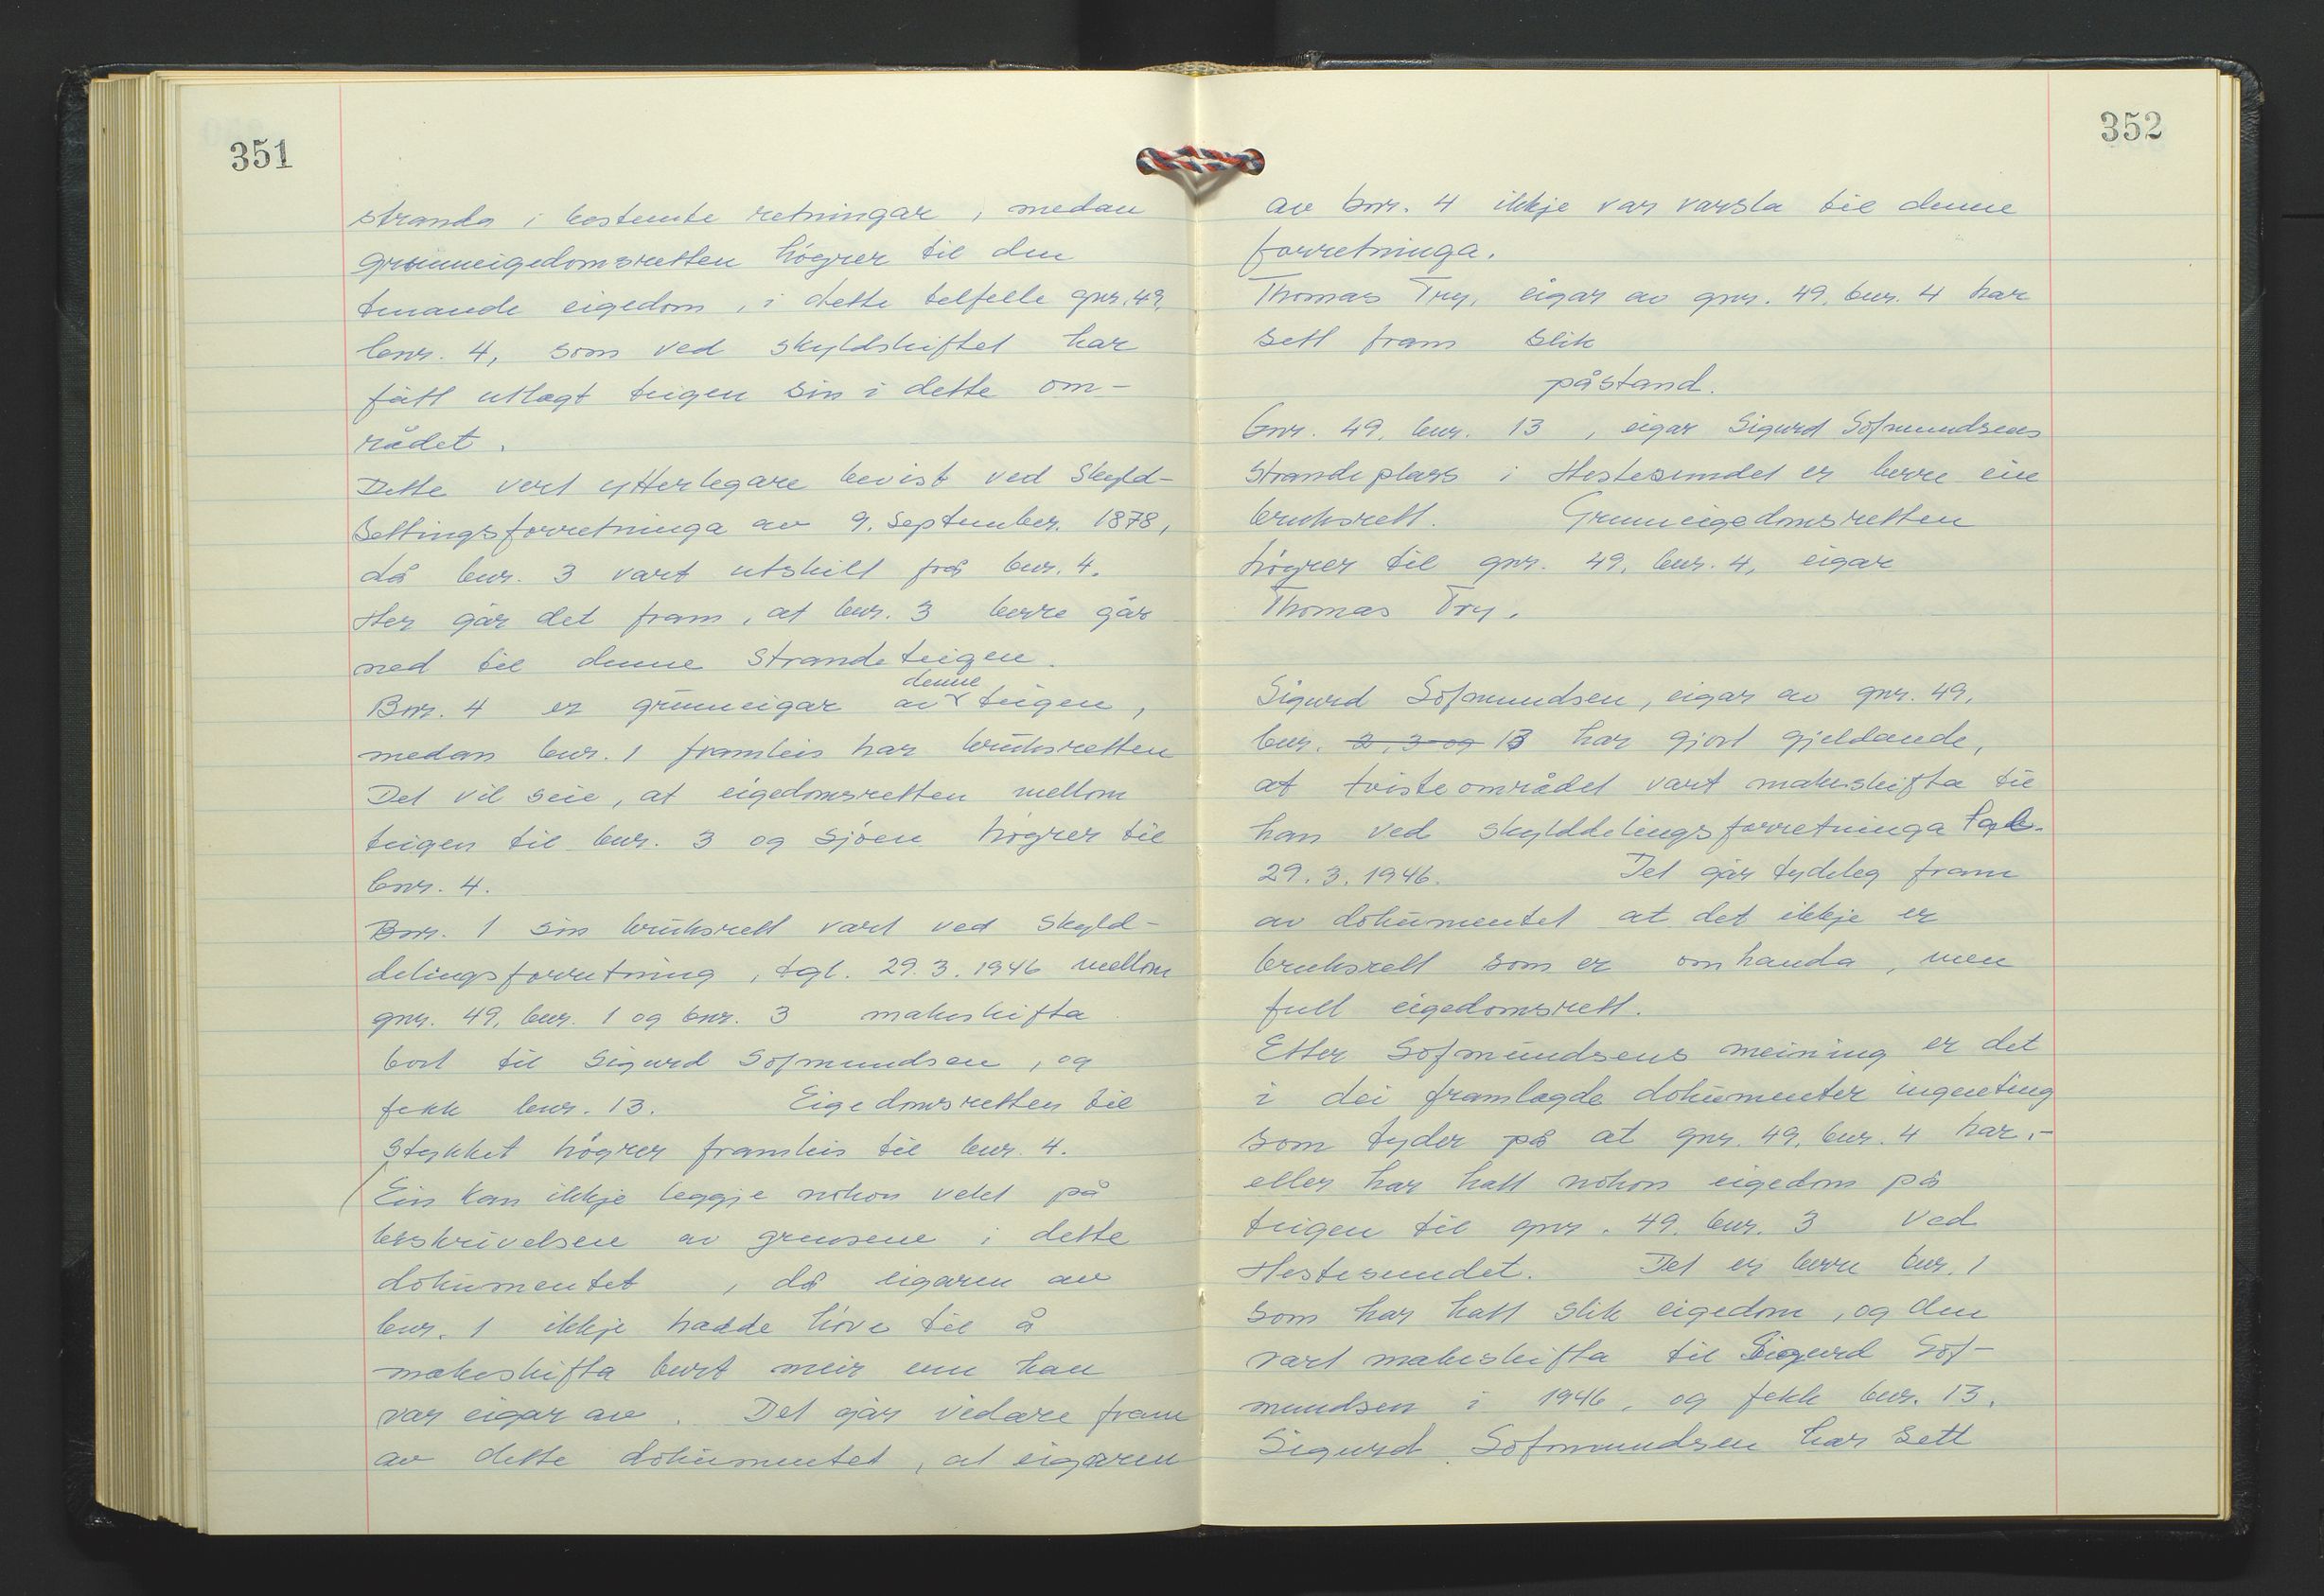 351
stranda i bestemte retningar, medan
grunneigedomsretten högrer til den
tenande eigedom, i dette telfelle gnr. 49,
bnr. 4, som ved skyldskiftet har
fått utlagt teigen sin i dette om-
rådet.
Dette vert ytterlegare bevist ved Skyld-
settingsforretninga av 9. September. 1878,
då bnr. 3 vart utskilt frå bnr. 4.
Her går det fram, at bnr. 3 berre går
ned til denne strandeteigen.
denne
Bnr. 4 er grunneigar av teigen,
medan bnr. 1 framleis har bruksretten
Det vil seie, at eigedomsretten mellom
teigen til bnr. 3 og sjöen högrer til
bnr. 4.
Bnr. 1 sin bruksrett vart ved Skyld-
delingsforretning, tgl. 29.3.1946 mellom
gnr. 49, bnr. 1 og bnr. 3 makeskifta
bort til Sigurd Sofmundsen, og
fekk bnr. 13. Eigedomsretten til
Stykket högrer framleis til bnr. 4.
Ein kan ikkje leggje nokon vekt på
beskrivelsen av grensene i dette
dokumentet, då eigaren av
bnr. 1 ikkje hadde höve til å
makeskifta burt meir enn han
var eigar av. Det går vidare fram
av dette dokumentet, at eigaren
352
av bnr. 4 ikkje var varsla til denne
forretninga.
Thomas Try, eigar av gnr. 49, bnr. 4 har
sett fram slik
påstand.
Gnr. 49, bnr. 13, eigar Sigurd Sofmundsens
strandeplass i Hestesundet er berre ein
bruksrett. Grunneigedomsretten
högrer til gnr. 49, bnr. 4, eigar
Thomas Try.
Sigurd Sofmundsen, eigar av gnr. 49,
bnr. 2, 3 og 13 har gjort gjeldande,
at tvisteområdet vart makeskifta til
han ved skylddelingsforretninga tgl.
29.3.1946. Det går tydeleg fram
av dokumentet at det ikkje er
bruksrett som er omhanda, men
full eigedomsrett.
Etter Sofmundsens meining er det
i dei framlagde dokumenter ingenting
som tyder på at gnr. 49, bnr. 4 har,-
eller har hatt nokon eigedom på
teigen til gnr. 49, bnr. 3 ved
Hestesundet. Det er berre bnr. 1
som har hatt slik eigedom, og den
vart makeskifta til Sigurd Sof-
mundsen i 1946, og fekk bnr. 13.
Sigurd Sofmundsen har sett